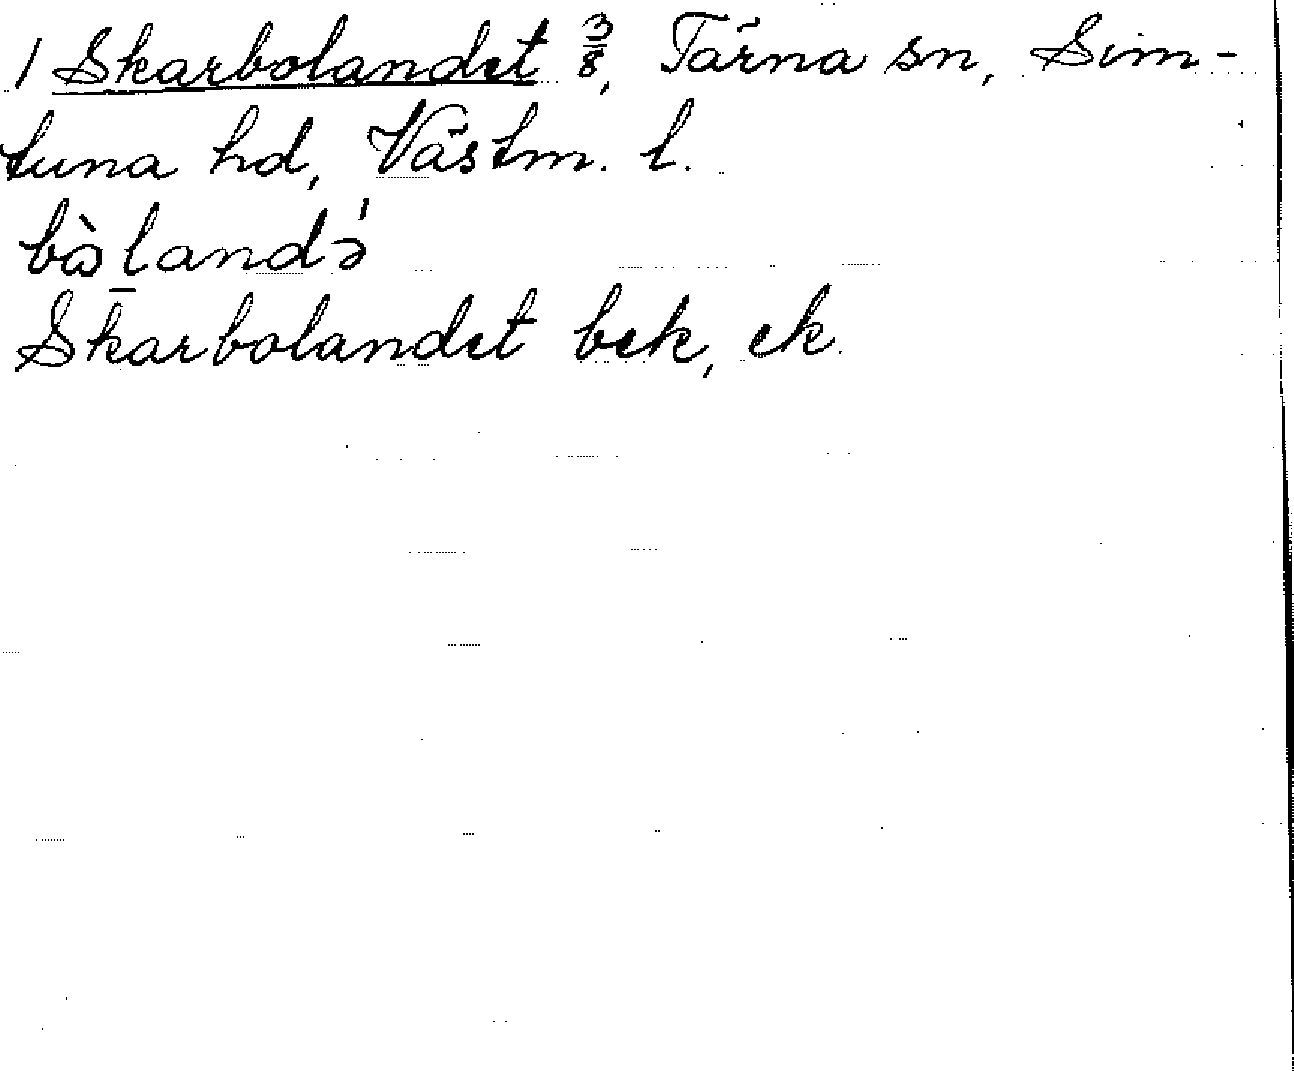 1 Skarbolandet 3/8, Tärna sn, Sim-
tuna hd, Västm. l.
bò̱landə́
Skarbolandet bek, ek.